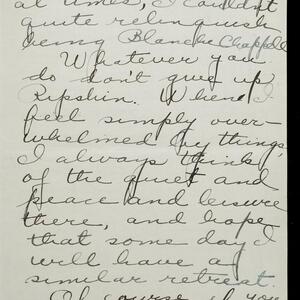 at times, I couldn't
quite relinquish
being Blanche Chappell
Whatever you
do don't give up
Ripshin. When I
feel simply over-
whelmed by things,
I always think
of the quiet and
peace and leisure
there, and hope
that some day I
will have a
similar retreat.
Of course if you